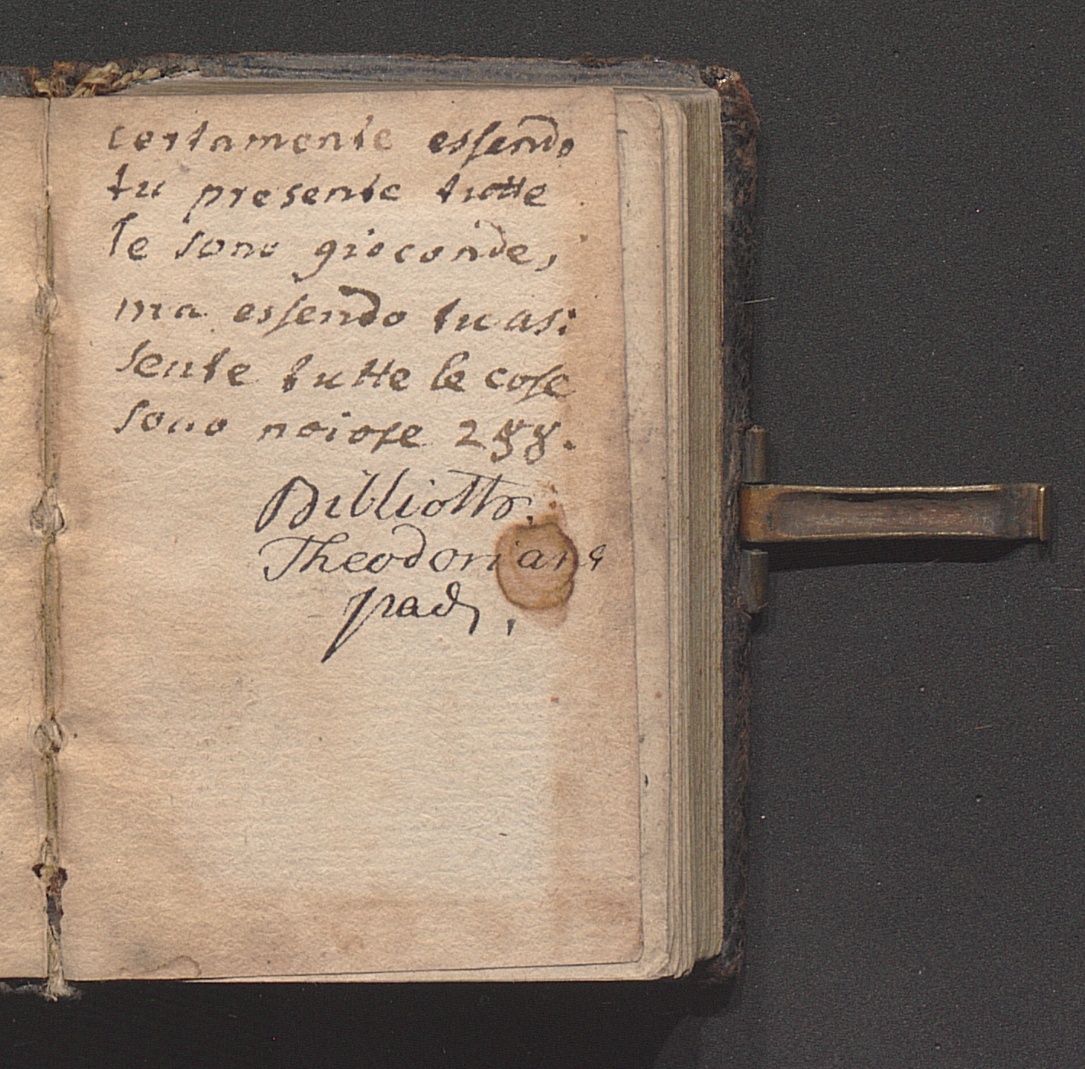 certamente essendo
tu presente tutte
le sono gioconde,
ma essendo tu as:
sente tutte le cose
sono noiose 288.
Biblioth.
Theodoriana
Pad,